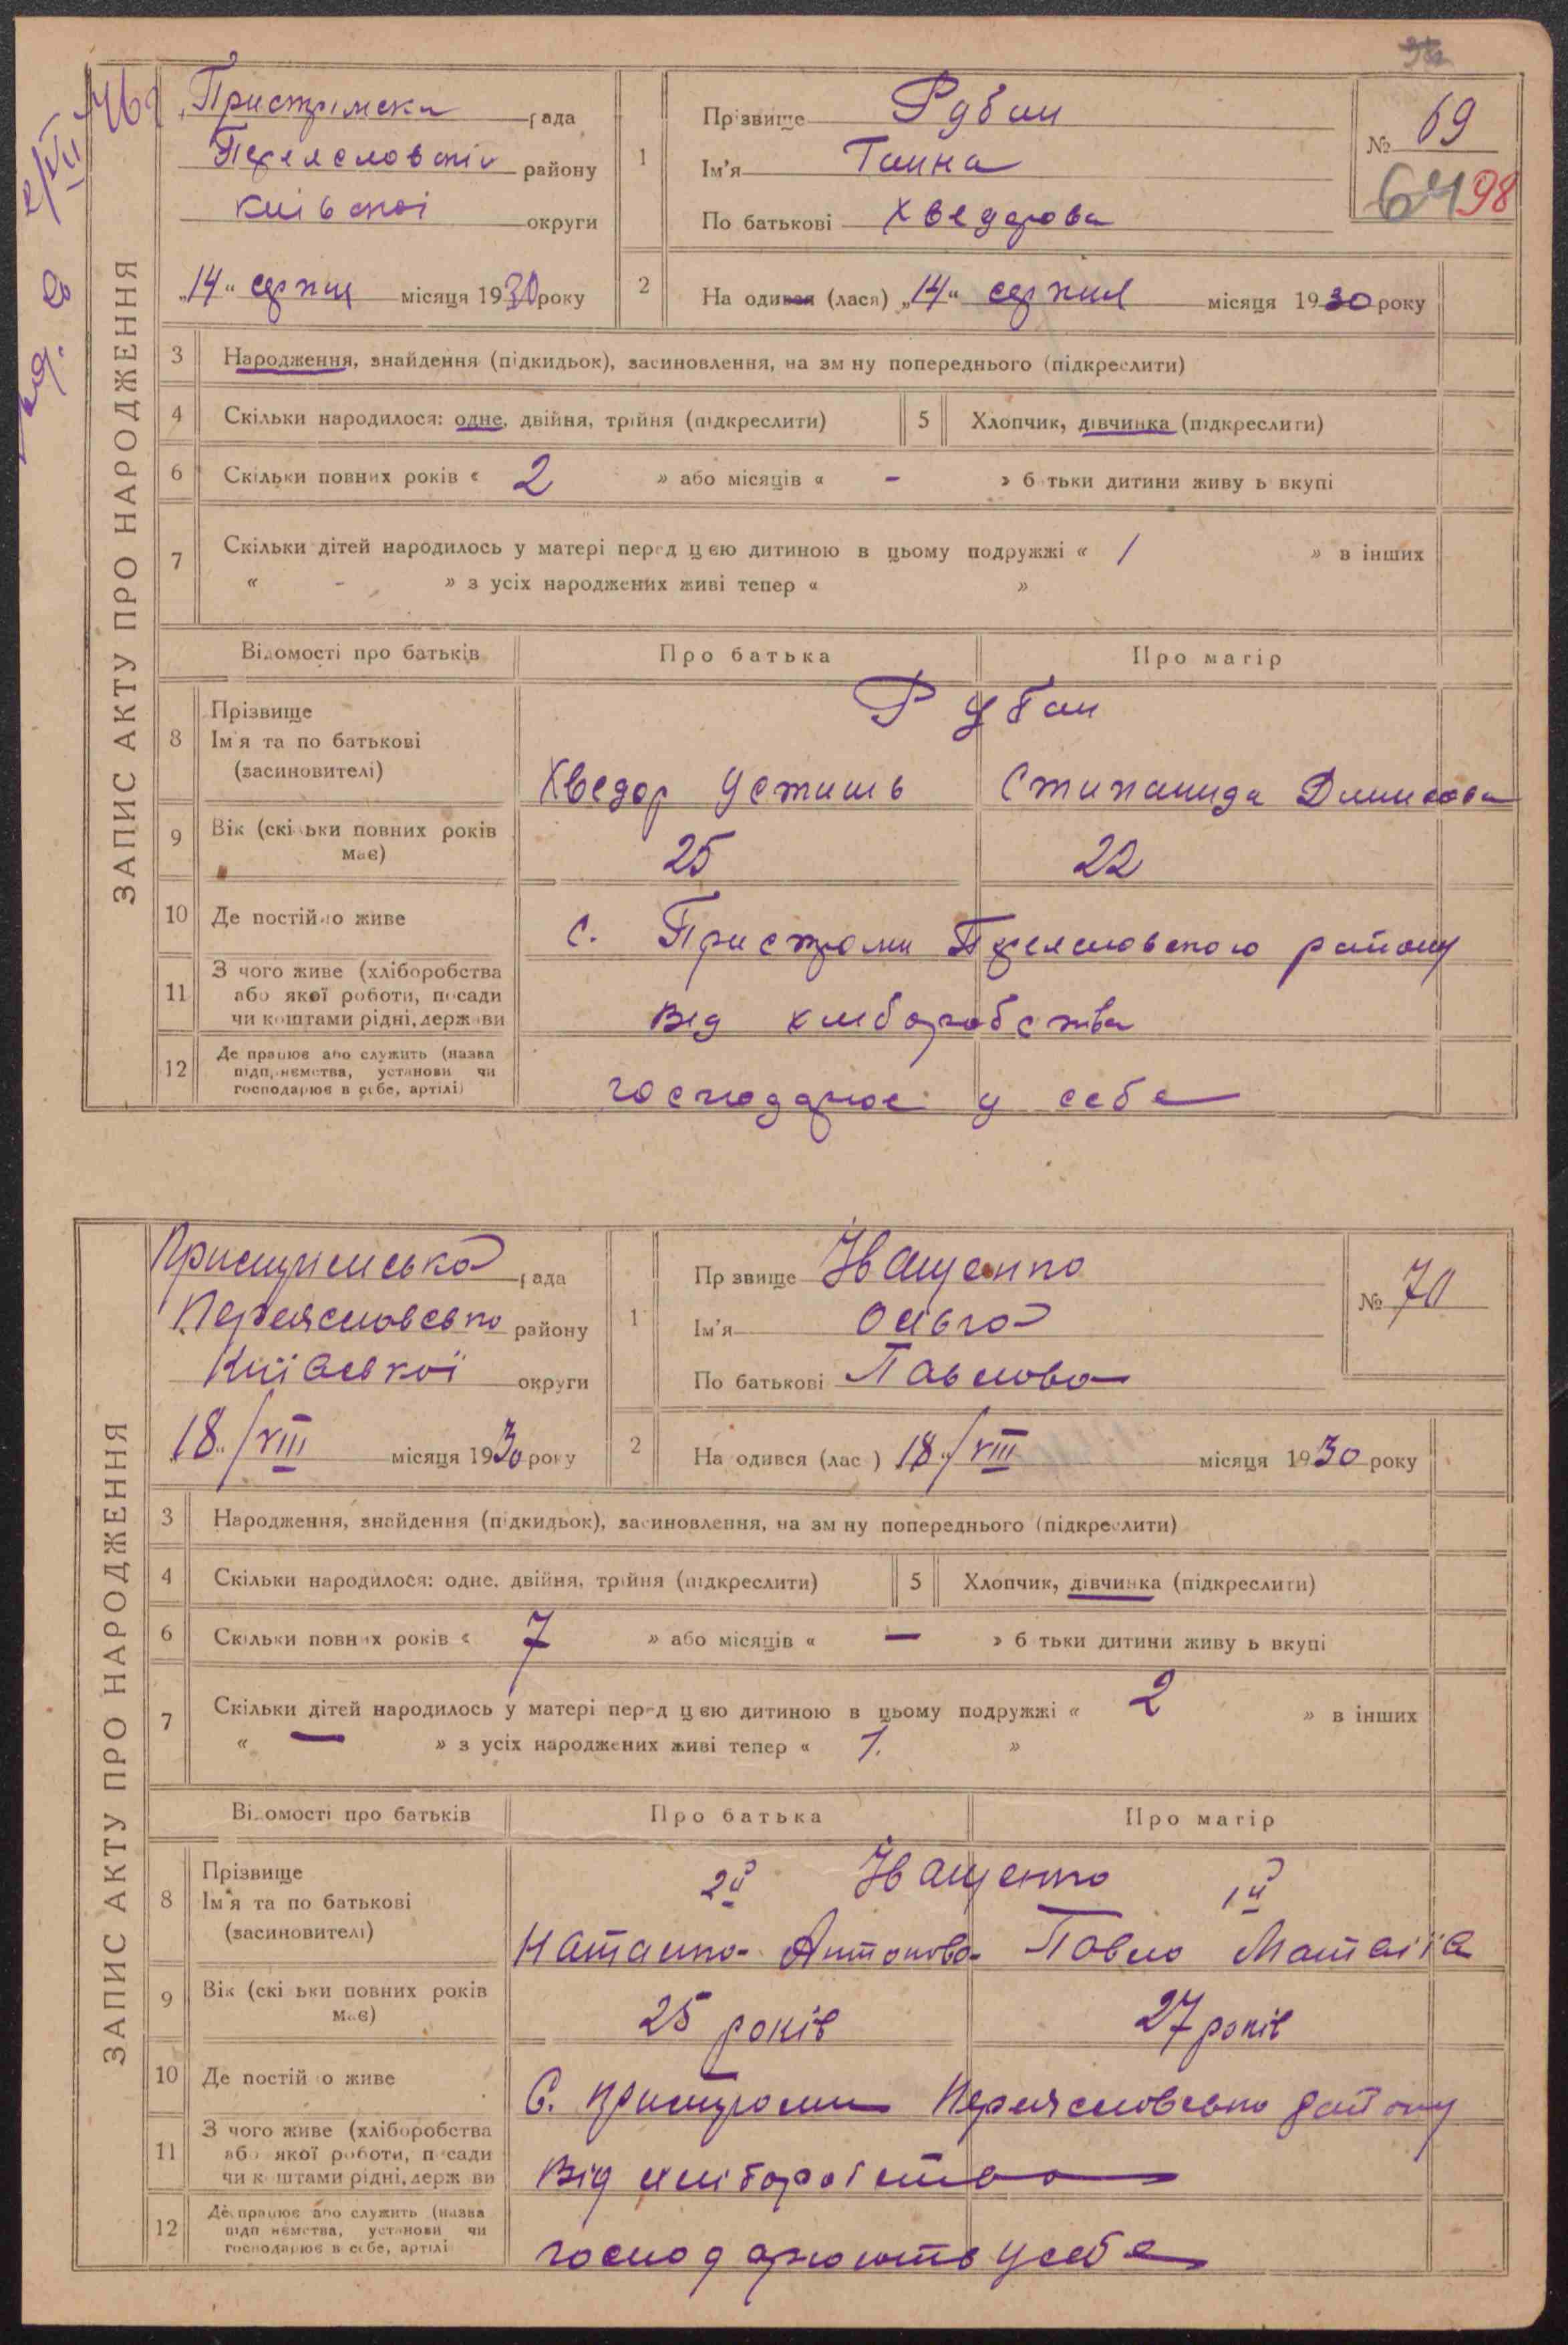 ЗАПИС АКТУ ПРО НАРОДЖЕННЯ
Пристрімська рада
Переяславські району
київської округи
„14“ серпня місяця 1930 року
1
Прізвище Рубан
Ім'я Ганна
По батькові Хведорова
№ 69
64 98
2 На одився (лася) „14“ серпня місяця 1930 року
3 Народження, знайдення (підкидьок), засиновлення, на зм ну попереднього (підкреслити)
4 Скільки народилося: одне, двійня, трійня (підкреслити) 5 Хлопчик, дівчинка (підкреслити)
6 Скільки повних років « 2 » або місяців « - » б тьки дитини живу ь вкупі
7 Скільки дітей народилось у матері перед цією дитиною в цьому подружжі « 1 » в інших
« - » з усіх народжених живі тепер « »
Відомості про батьків Про батька Про матір
8 Прізвище
Ім'я та по батькові
(засиновителі)
Рубан
Хведор Устинів Стипанида Динисова
9 Вік (скільки повних років має) 25 22
10 Де постійно живе с. Пристроми Переяславского району
11 З чого живе (хліборобства
або якої роботи, посади
чи коштами рідні, держави
Від хліборобства
12 Де працює або служить (назва
підприємства, установи чи
господарює в себе, артілі)
господарює у себе
ЗАПИС АКТУ ПРО НАРОДЖЕННЯ
Пристримська рада
Переяславсько району
Київської округи
18/VIII місяця 1930 року
1
Пр звище Іващенко
Ім'я Ольга
По батькові Павлова
№ 70
2 На одився (лас ) 18/VIII місяця 1930 року
3 Народження, знайдення (підкидьок), засиновлення, на зм ну попереднього (підкреслити)
4 Скільки народилося: одне, двійня, трійня (підкреслити) 5 Хлопчик, дівчинка (підкреслити)
6 Скільки повних років « 7 » або місяців « — » б тьки дитини живу ь вкупі
7 Скільки дітей народилось у матері перед цією дитиною в цьому подружжі « 2 » в інших
« — » з усіх народжених живі тепер « 1. »
Відомості про батьків Про батька Про матір
8 Прізвище
Ім'я та по батькові
(засиновителі)
2й Іващенко 1й
Наталка Антонова Павло Матвіїв
9 Вік (скі ьки повних років має) 25 років 27 років
10 Де постій о живе С. Пристроми Переяславсько району
11 З чого живе (хліборобства
або якої роботи, посади
чи коштами рідні, держави
Від хліборобства
12 Де працює або служить (назва
підприємства, установи чи
господарює в себе, артілі
господарюють у себе